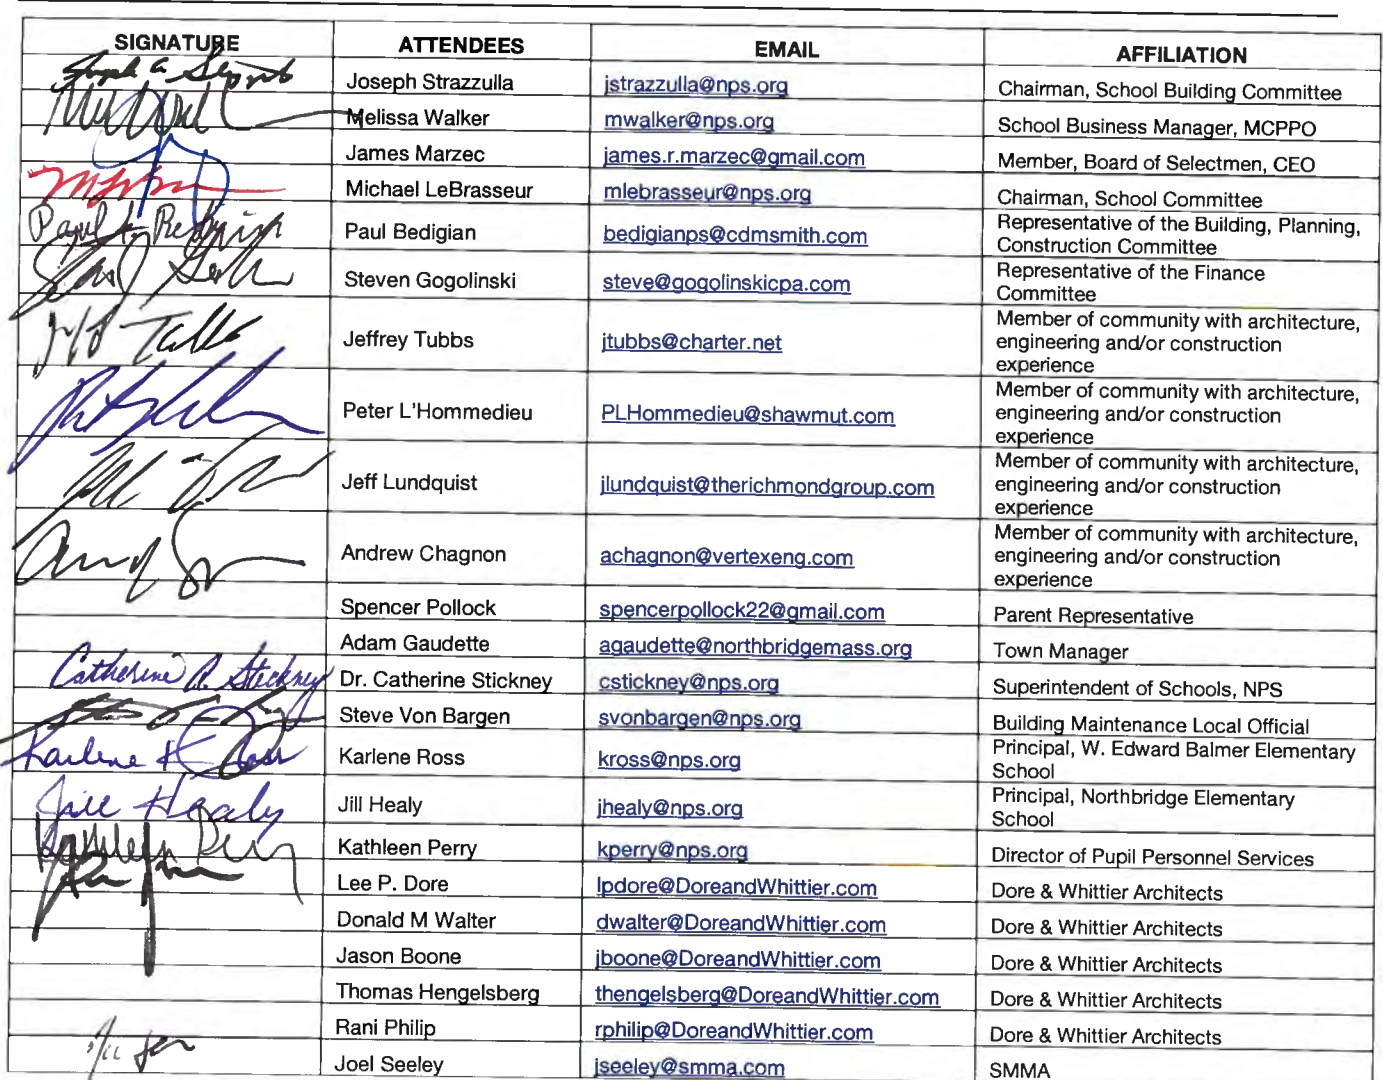 SIGNATURE ATTENDEES EMAIL AFFILIATION
Joseph Strazzulla jstrazzulla@nps.org Chairman, School Building Committee
Melissa Walker mwalker@nps.org School Business Manager, MCPPO
James Marzec james.r.marzec@gmail.com Member, Board of Selectmen, CEO
Michael LeBrasseur mlebrasseur@nps.org Chairman, School Committee
Paul Bedigian bedigianps@cdmsmith.com Representative of the Building, Planning,
Construction Committee
Steven Gogolinski steve@gogolinskicpa.com Representative of the Finance
Committee
Jeffrey Tubbs jtubbs@charter.net Member of community with architecture,
engineering and/or construction
experience
Peter L'Hommedieu PLHommedieu@shawmut.com Member of community with architecture,
engineering and/or construction
experience
Jeff Lundquist jlundquist@therichmondgroup.com Member of community with architecture,
engineering and/or construction
experience
Andrew Chagnon achagnon@vertexeng.com Member of community with architecture,
engineering and/or construction
experience
Spencer Pollock spencerpollock22@gmail.com Parent Representative
Adam Gaudette agaudette@northbridgemass.org Town Manager
Catherine A. Stickney Dr. Catherine Stickney cstickney@nps.org Superintendent of Schools, NPS
Steve Von Bargen svonbargen@nps.org Building Maintenance Local Official
Karlene K Ross Karlene Ross kross@nps.org Principal, W. Edward Balmer Elementary
School
Jill Healy Jill Healy jhealy@nps.org Principal, Northbridge Elementary
School
Kathleen Perry Kathleen Perry kperry@nps.org Director of Pupil Personnel Services
Lee P. Dore lpdore@DoreandWhittier.com Dore & Whittier Architects
Donald M Walter dwalter@DoreandWhittier.com Dore & Whittier Architects
Jason Boone jboone@DoreandWhittier.com Dore & Whittier Architects
Thomas Hengelsberg thengelsberg@DoreandWhittier.com Dore & Whittier Architects
Rani Philip rphilip@DoreandWhittier.com Dore & Whittier Architects
Joel Seeley jseeley@smma.com SMMA